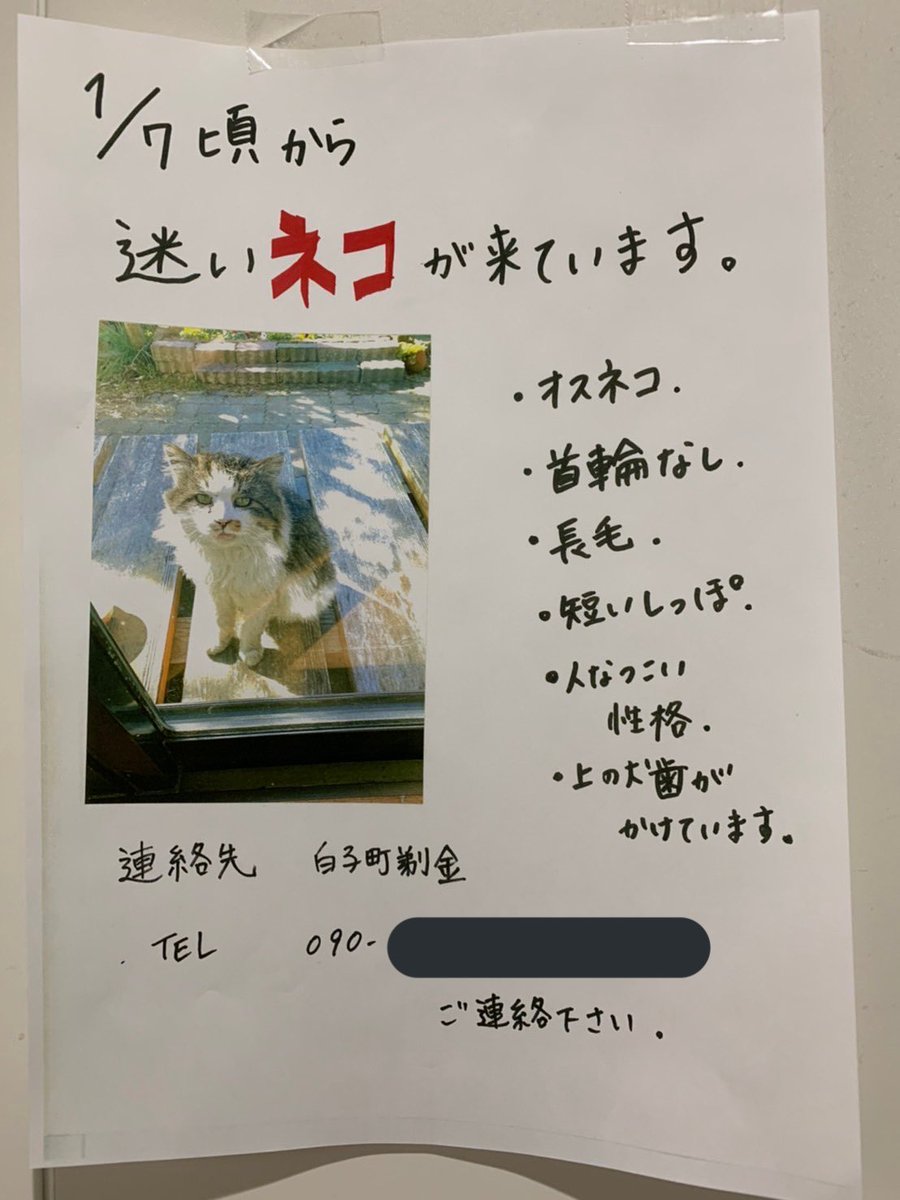 1/7頃から
迷いネコが来ています。
・オスネコ.
・首輪なし.
・長毛.
・短いしっぽ.
・人なつこい
性格.
・上の犬歯が
かけています。
連絡先 白子町剃金
TEL 090-
ご連絡下さい.